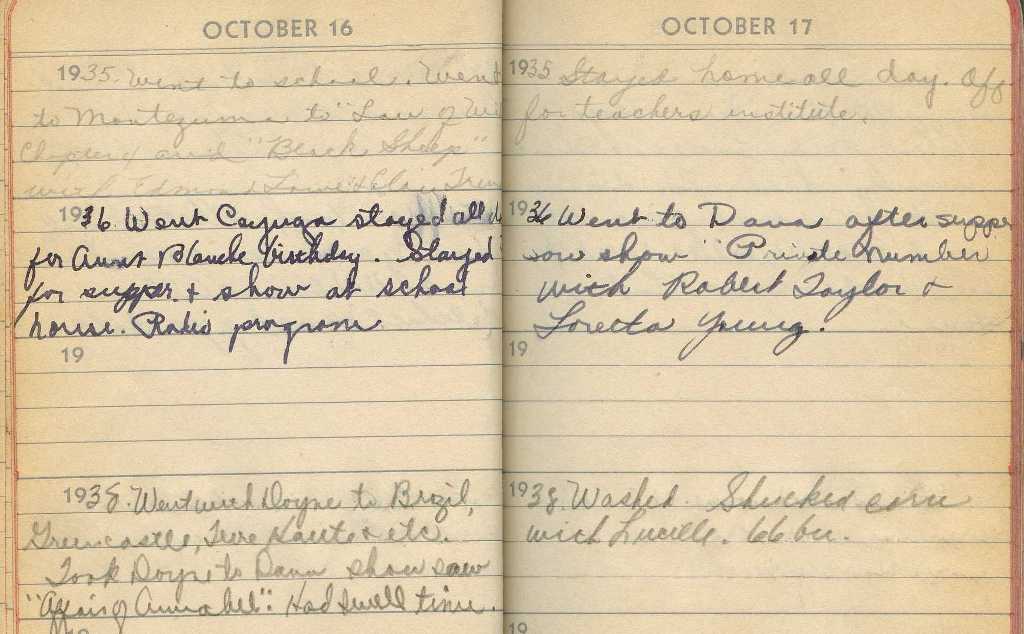 OCTOBER 16
1935. Went to school. Went
to Montezuma to "Law of
Chapter 4 and "Black Sheep"
with Edmund Lowe & Claire Trev
1936. Went Cayuga stayed all d
for Aunt Blanche birthday. Stayed
for supper & show at school
house. Radio program
19
1938. Went with Doyne to Brazil,
Greencastle, Terre Haute & etc.
Took Doyne to Dana show saw
"Affairs of Annabel". Had swell time.
OCTOBER 17
1935 Stayed home all day. Off
for teachers institute.
1936 Went to Dana after supper
saw show "Private Number
with Robert Taylor &
Loretta Young.
19
1938. Washed. Shucked corn
with Lucille. 66 bu.
19